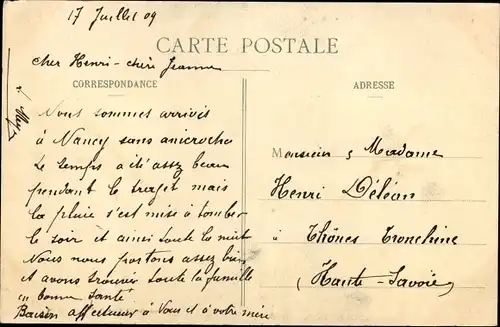 17 Juillet 09
CARTE POSTALE
cher Henri - chère Jeanne
CORRESPONDANCE
ADRESSE
Nous sommes arrivés
à Nancy sans anicroche
Le temps a été assez beau
pendant le trajet mais
la pluie s'est mise à tomber
le soir et ainsi toute la nuit
Nous nous portons assez bien
et avons trouver toute la famille
en bonne santé
Baisers affectueux à Vous et à votre mère
Monsieur, Madame
Henri Déléan
à Thônes Tronchine
(Haute-Savoie)